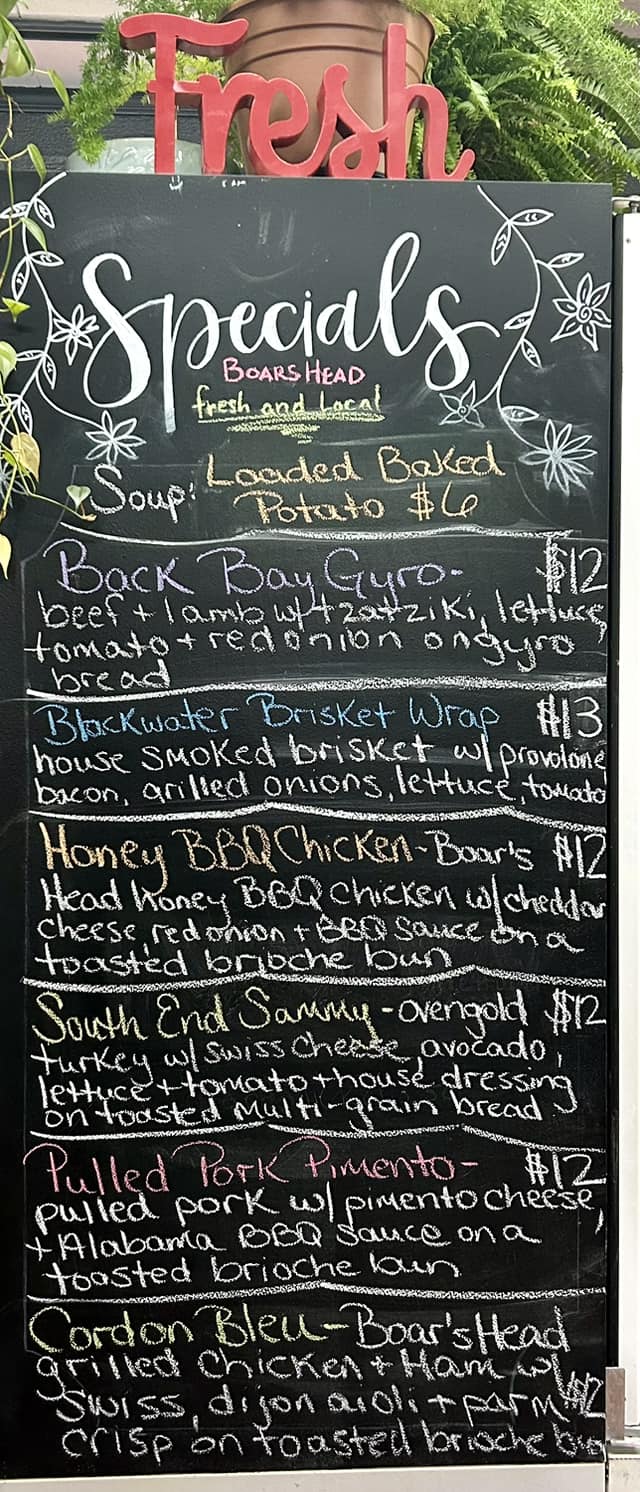 Fresh
Specials
BOARS HEAD
fresh and local
Soup: Loaded Baked
Potato $6
Back Bay Gyro- $12
beef + lamb w/ tzatziki, lettuce,
tomato + red onion on gyro
bread
Blackwater Brisket Wrap $13
house smoked brisket w/ provolone
bacon, grilled onions, lettuce, tomato
Honey BBQ Chicken - Boar's $12
Head honey BBQ chicken w/ cheddar
cheese red onion + BBQ sauce on a
toasted brioche bun
South End Sammy - ovengold $12
turkey w/ swiss cheese, avocado,
lettuce + tomato + house dressing
on toasted multi-grain bread
Pulled Pork Pimento- $12
pulled pork w/ pimento cheese,
+ Alabama BBQ sauce on a
toasted brioche bun
Cordon Bleu - Boar's Head
grilled chicken + Ham w/
swiss, dijon aioli + parm $12
crisp on toasted brioche bun